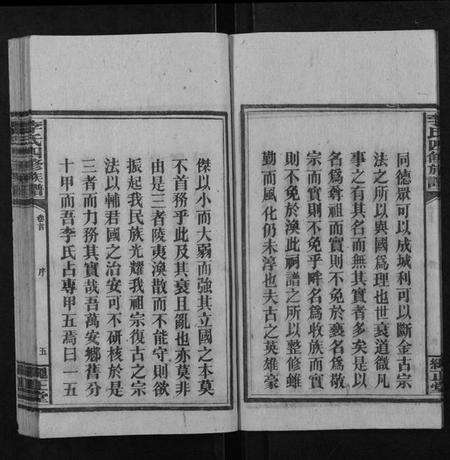 同德眾可以成城利可以斷金古宗
法之所以與國為理也世衰道微凡
事之有其名而無其實者多矣是以
名為尊祖而實則不免於褻名為敬
宗而實則不免乎畔名為收族而實
則不免於渙此祠譜之所以整修雖
勤而風化仍未淳也夫古之英雄豪
傑以小而大弱而強其立國之本莫
不首務乎此及其衰且亂也亦莫非
由是三者陵夷渙散而不能守則欲
振起我民族光耀我祖宗復古之宗
法以輔君國之治安可不研核於是
三者而力務其實哉吾萬安鄉舊分
十甲而吾李氏占專甲五焉曰一五
李氏四修族譜
卷首
序
五